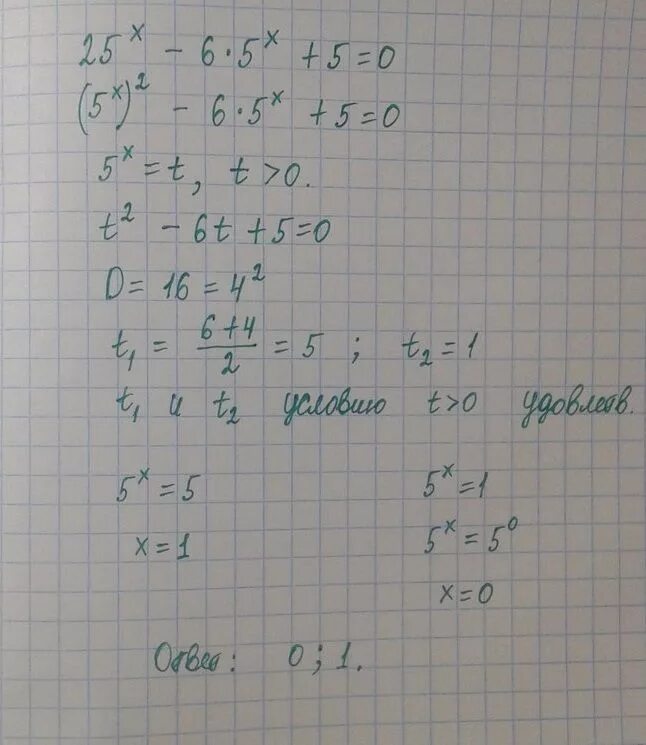 25ˣ − 6·5ˣ + 5 = 0
(5ˣ)² − 6·5ˣ + 5 = 0
5ˣ = t, t > 0.
t² − 6t + 5 = 0
D = 16 = 4²
t₁ = (6+4)/2 = 5 ; t₂ = 1
t₁ и t₂ условию t>0 удовлетв.
5ˣ = 5 5ˣ = 1
x = 1 5ˣ = 5⁰
x = 0
Ответ: 0 ; 1.